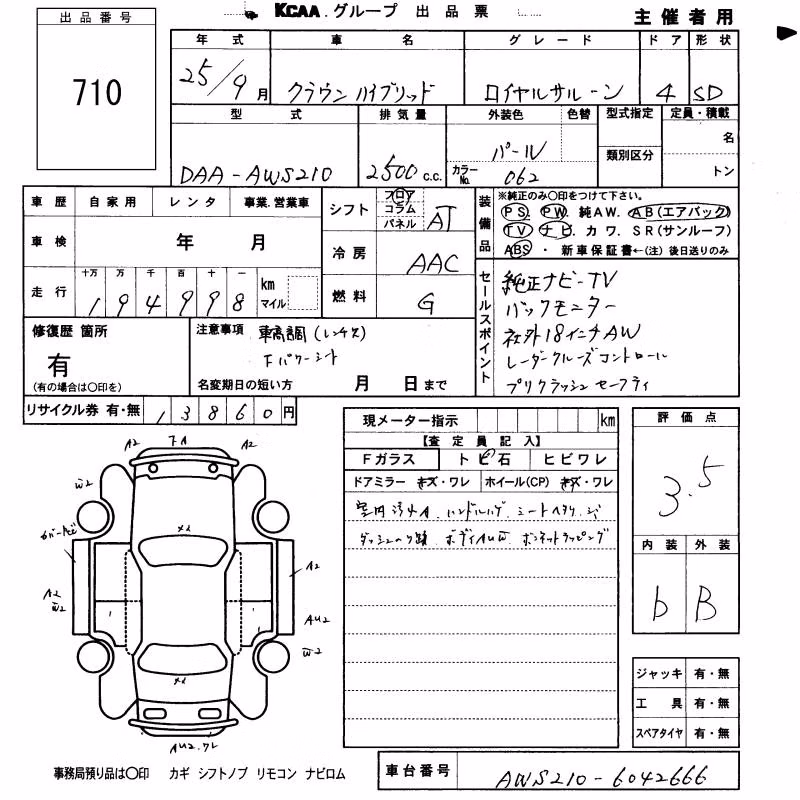 KCAA.グループ 出品票
主催者用
出品番号
710
年式 車名 グレード ドア 形状
25/9月 クラウンハイブリッド ロイヤルサルーン 4 SD
型式 排気量 外装色 色替 型式指定 定員・積載
DAA-AWS210 2500c.c. パール 名
カラーNo. 062 類別区分 トン
車歴 自家用 レンタ 事業.営業車
車検 年 月
走行 十万 万 千 百 十 一
194998 km マイル
シフト フロア コラム パネル AT
冷房 AAC
燃料 G
装備品 ※純正のみ〇印をつけて下さい。
PS. PW. 純AW. AB(エアバック)
TV ナビ. カワ. SR(サンルーフ)
ABS ・ 新車保証書←(注) 後日送りのみ
セールスポイント
純正ナビ-TV
バックモニター
社外18インチAW
レーダークルーズコントロール
プリクラッシュセーフティ
修復歴 箇所
有
(有の場合は〇印を)
注意事項 車高調(レンチ欠)
Fパワーシート
名変期日の短い方 月 日まで
リサイクル券 有・無 13860円
現メーター指示 km
【査定員記入】
Fガラス トビ石 ヒビワレ
ドアミラー キズ・ワレ ホイール(CP) キズ・ワレ
室内汚れA. ハンドルハゲ. シートヘタリ.
ボディAUW. ボンネットラッピング
評価点
3.5
内装 外装
b B
ジャッキ 有・無
工具 有・無
スペアタイヤ 有・無
A2 7A A2
W2
メ2
A2
A2
W2
AU2
W2
メ2
AU2.ワレ
事務局預り品は〇印 カギ シフトノブ リモコン ナビロム
車台番号 AWS210-6042666